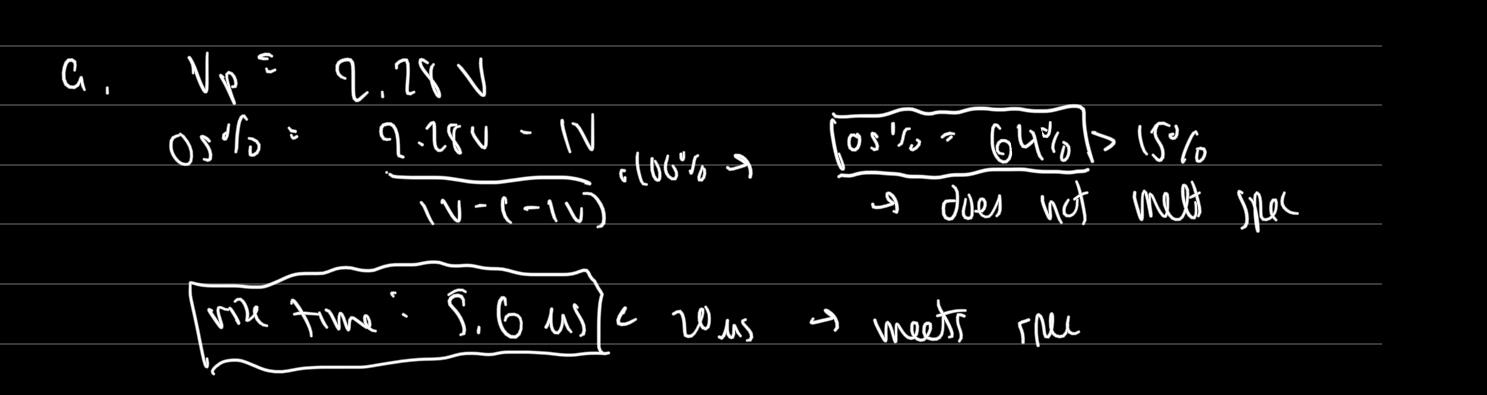 a. Vp = 2.28 V
OS% = 2.28V - 1V / 1V-(-1V) . 100% → OS% = 64% > 15%
→ does not meet spec
rise time: 5.6 us < 20 us → meets spec